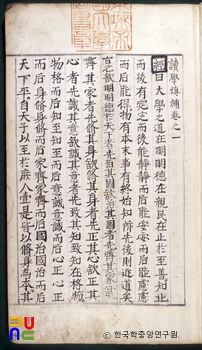 學埤補卷之一
經曰大學之道在明明德在親民在止於至善知止
而後有定定而後能靜靜而后能安安而后能慮慮
而后能得物有本末事有終始知所先後則近道矣
古之欲明明德於天下者先治其國欲治其國者先齊其家欲
齊其家者先脩其身欲脩其身者先正其心欲正其
心者先誠其意欲誠其意者先致其知致知在格物
物格而后知至知至而后意誠意誠而后心正心正
而后身脩身脩而后家齊家齊而后國治國治而后
天下平自天子以至於庶人壹是皆以脩身爲本其
한국학중앙연구원